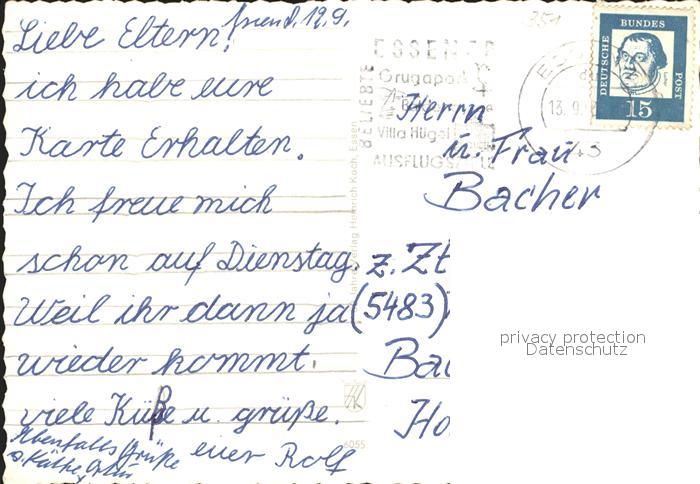 Liebe Eltern!
ich habe eure
Karte Erhalten.
Ich freue mich
schon auf Dienstag.
Weil ihr dann ja
wieder kommt.
viele Küße u. grüße.
euer Rolf
Ebenfalls Grüße
19.9.
BELIEBTE
ESSENER
Grugapark
Villa Hügel
AUSFLUGS
13.9.
43
DEUTSCHE
BUNDES
POST
15
Herrn
u. Frau
Bacher
z. Zt
(5483)
Bac
Ho
Verlag Heinrich Koch, Essen
6055
privacy protection
Datenschutz